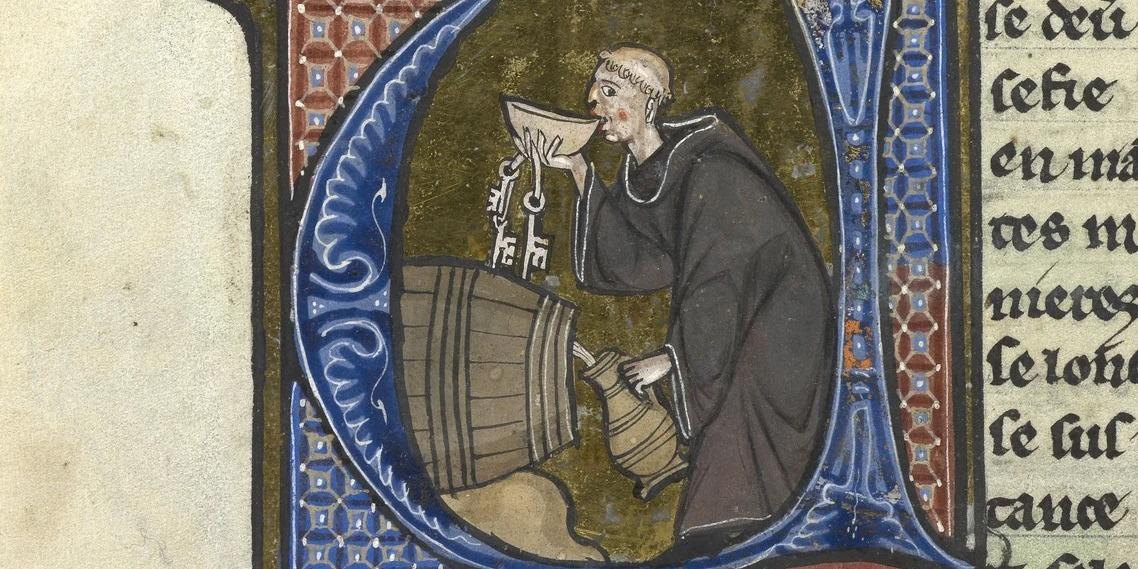 se deu
sefie
en mā
tes m
nieres
se lonc
se sus
tance